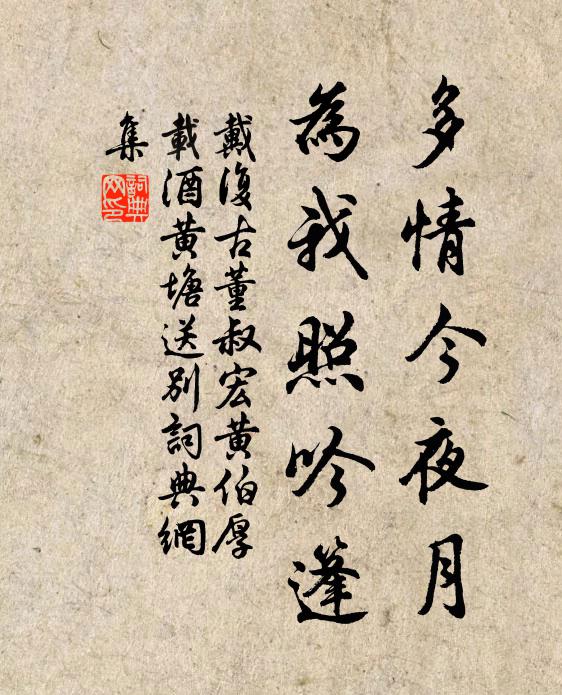 多情今夜月
為我照吟篷
戴復古董叔宏黃伯厚
載酒黃塘送別詞典網
集
詞典
网印